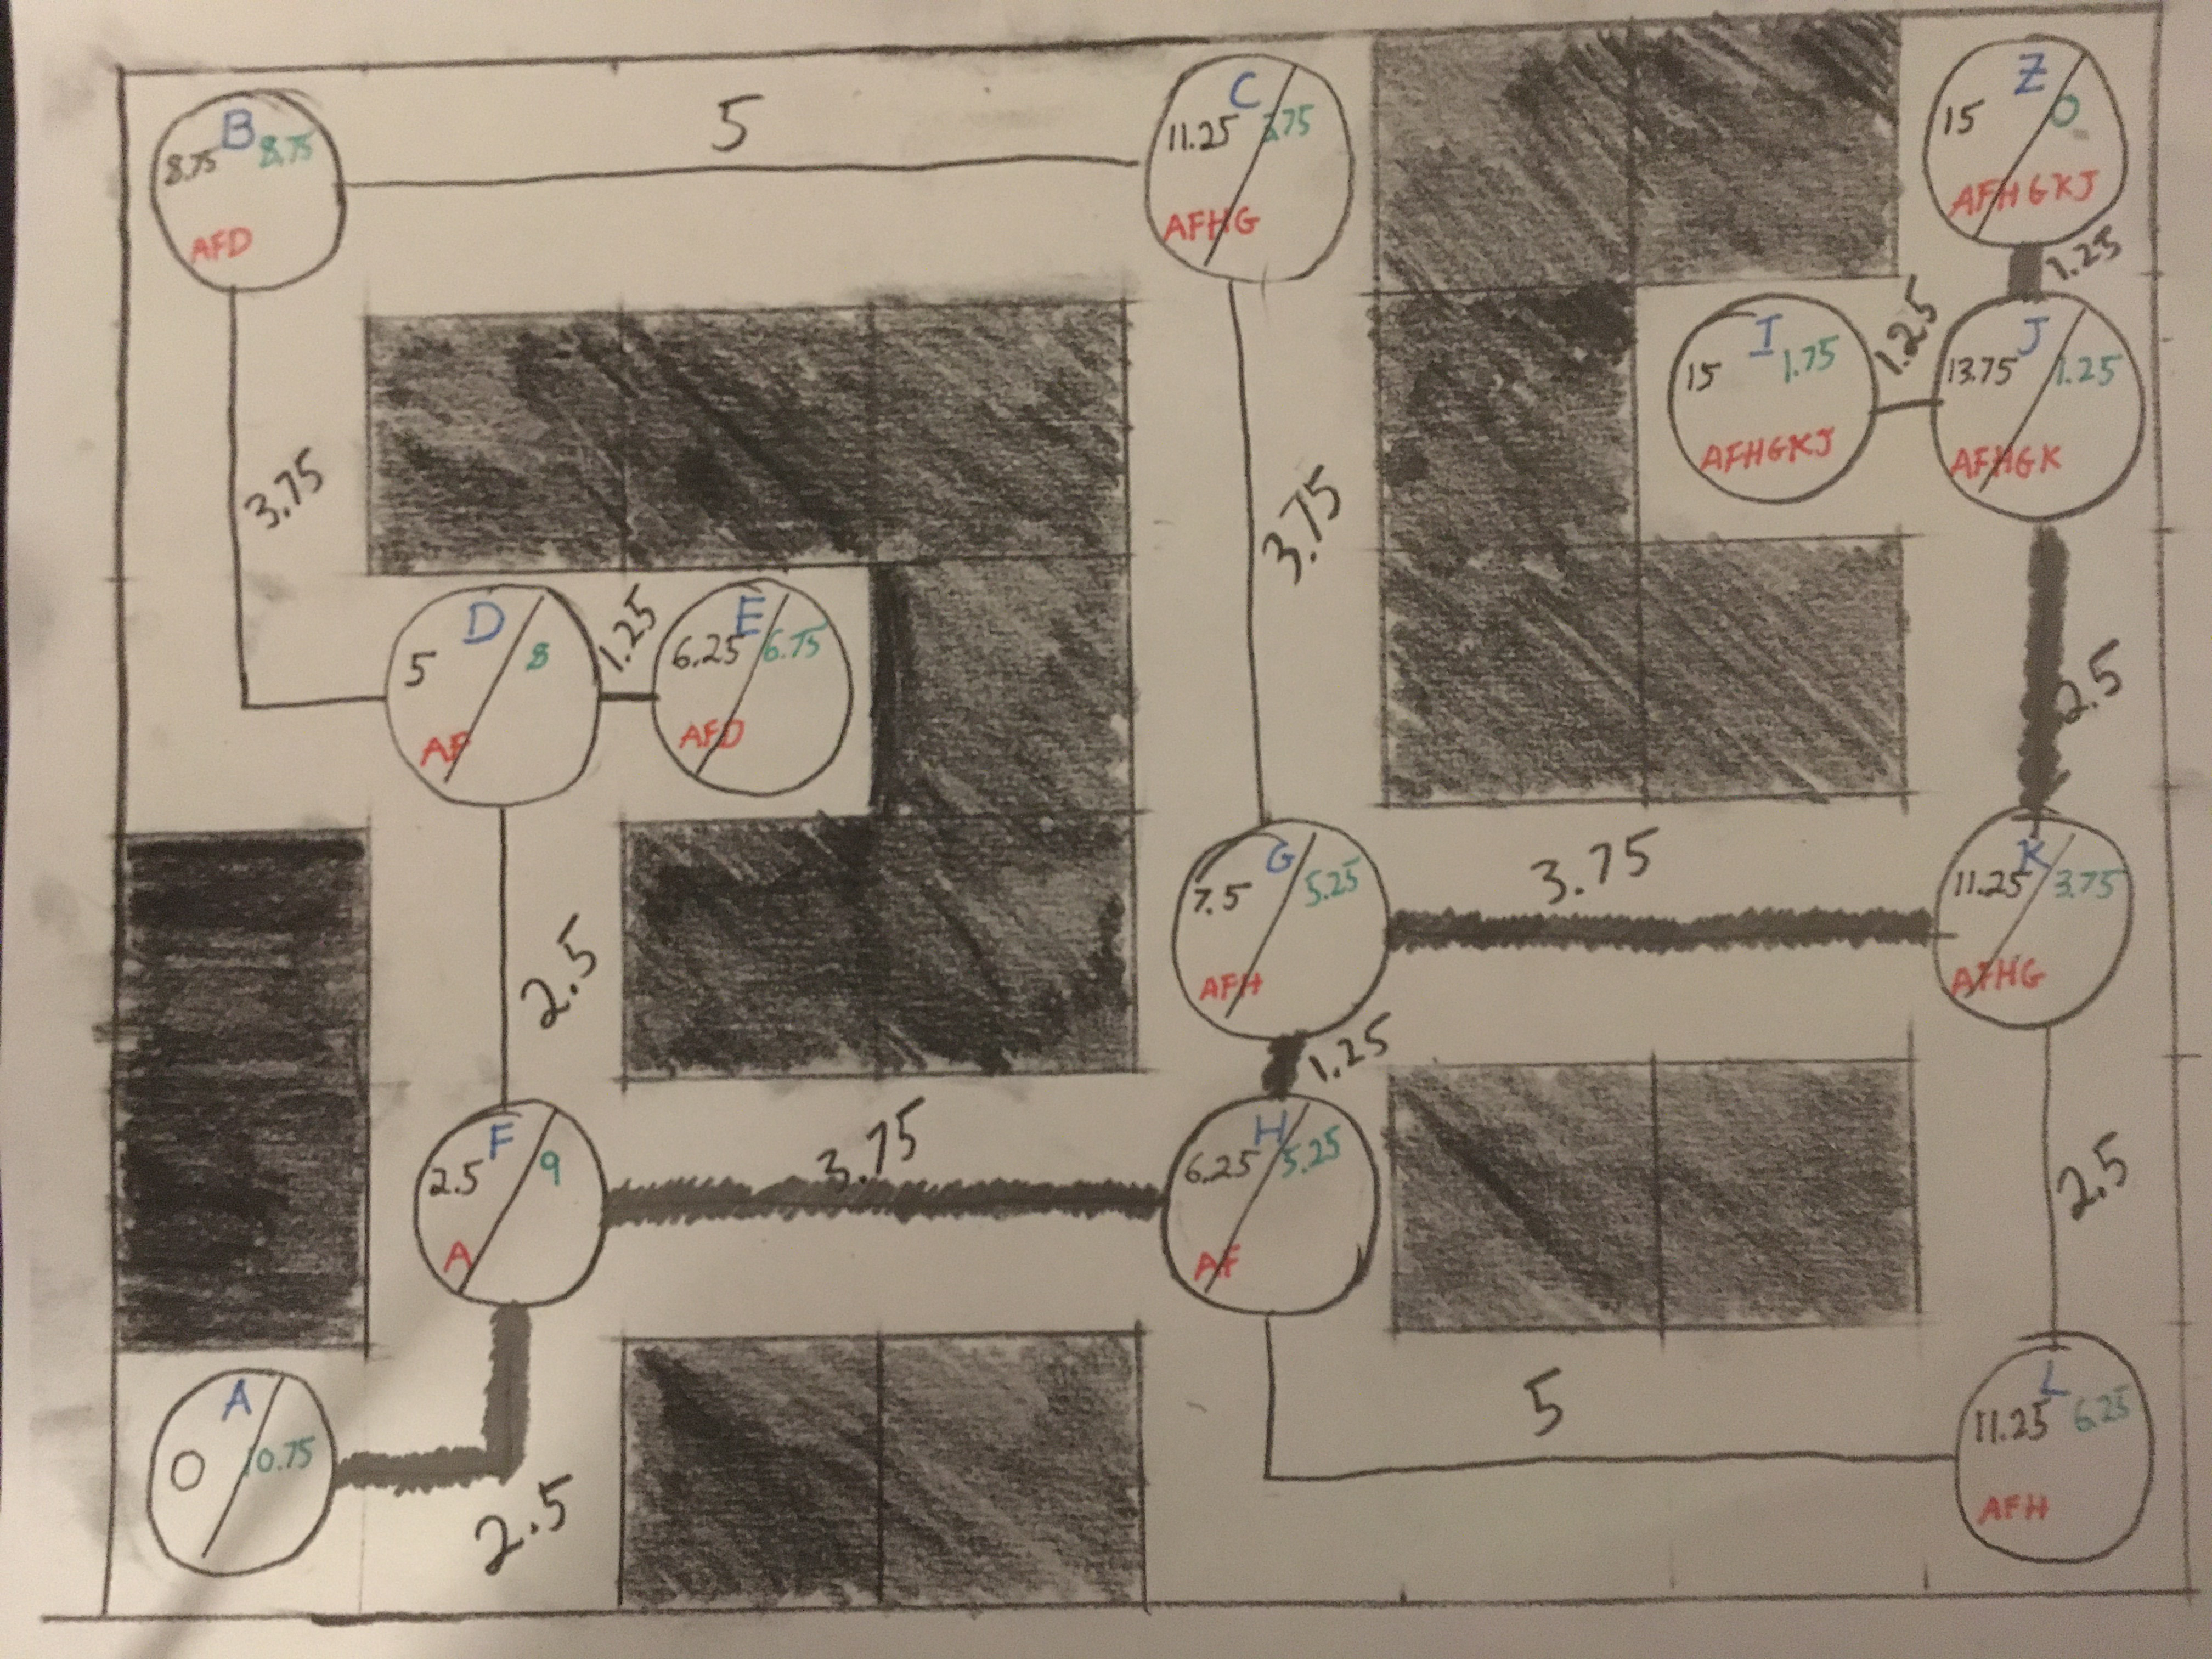 B
8.75 8.75
AFD
5
C
11.25 3.75
AFHG
Z
15 0
AFHGKJ
1.25
I
15 1.75
AFHGKJ
1.25
J
13.75 1.25
AFHGK
3.75
D
5 8
AF
1.25
E
6.25 6.75
AFD
3.75
2.5
2.5
G
7.5 5.25
AFH
3.75
K
11.25 3.75
AFHG
1.25
F
2.5 9
A
3.75
H
6.25 5.25
AF
2.5
A
0 10.75
2.5
5
L
11.25 6.25
AFH